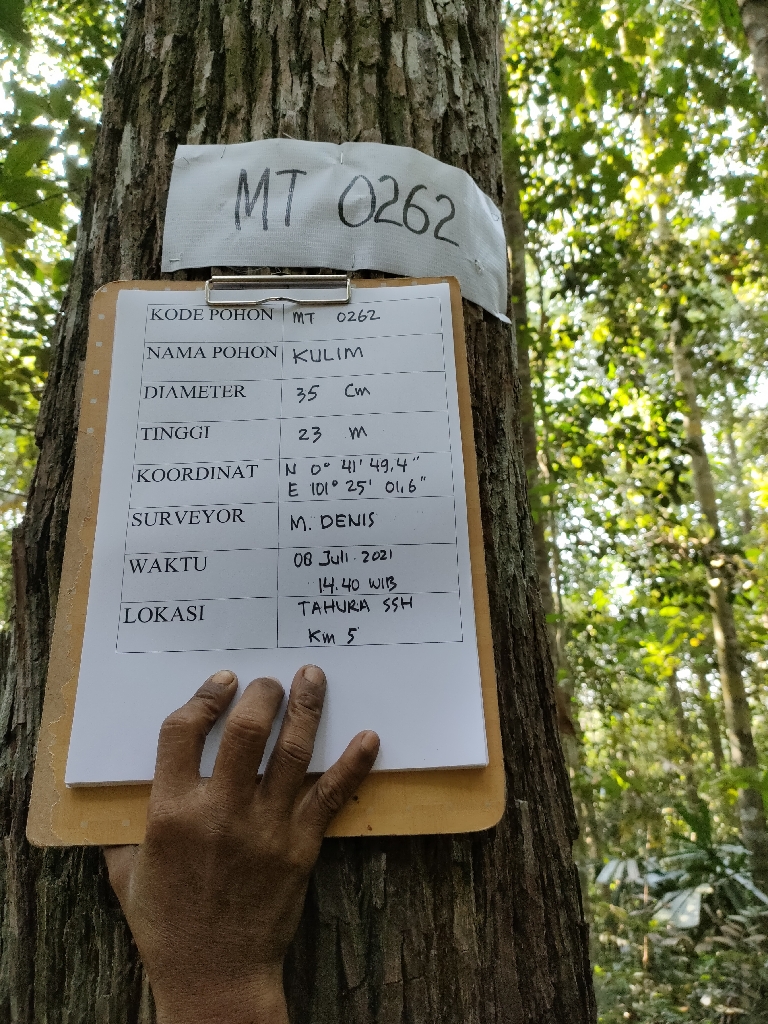 MT 0262
KODE POHON MT 0262
NAMA POHON KULIM
DIAMETER 35 Cm
TINGGI 23 m
KOORDINAT N 0° 41' 49,4"
E 101° 25' 01,6"
SURVEYOR M. DENIS
WAKTU 08 Juli 2021
14.40 WIB
LOKASI TAHURA SSH
Km 5